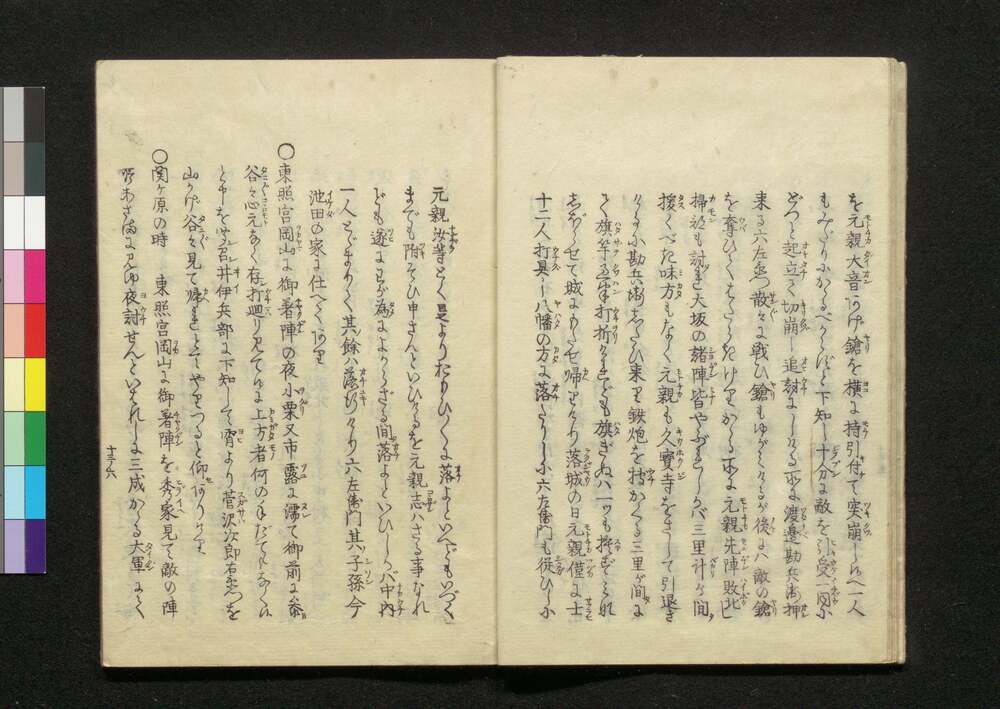 を元親大音あげ鎗を横に持引付て突崩しゆへ一人
もみだりにかゝるべからずと下知し十分に敵を引受一同に
どつと起立て切崩し追討にしける所に渡邊勘兵衛押
来る六左衛門散々に戦ひ鎗もゆがみけるが後には敵の鎗
を奪ひてはたらきけりかゝる所に元親先陣敗北し
掃部も討れ大坂の諸陣皆やぶれしかバ三里計が間
援くべき味方もなく元親も久寶寺をさして引退き
けるに勘兵衛したひ来り鉄炮を打かくる三里が間に
て旗竿
打折けれども旗ぎぬハ一ツも捨ずとられ
城にもたせ帰りけり落城の日元親僅に士
十二人打具し八幡の方に落たりしに六左衛門も従ひしに
元親汝等とく是よりたちひて落よといへどもいづく
までも附そひ申さんといひけるを元親志ハさる事なれ
ども遂に
為によからざる間落よといひしかバ中内
一人とゞまりて其餘ハ落行けり六左衛門其子孫今
池田の家に仕へてあり
〇東照宮岡山に御着陣の夜小栗又市露に濡て御前に参
谷々心元なく存打廻り見てゆに上方者何の手だてもなくゆ
と申を
召井伊兵部に下知して宵より菅沢次郎右衛門を
山々谷々見て帰れとてやりつると仰ありけり
〇関ヶ原の時　東照宮岡山に御着陣を秀家見て敵の陣
あさまに見ゆ夜討せんといはれしに三成かゝる大軍にて
十三ノ六